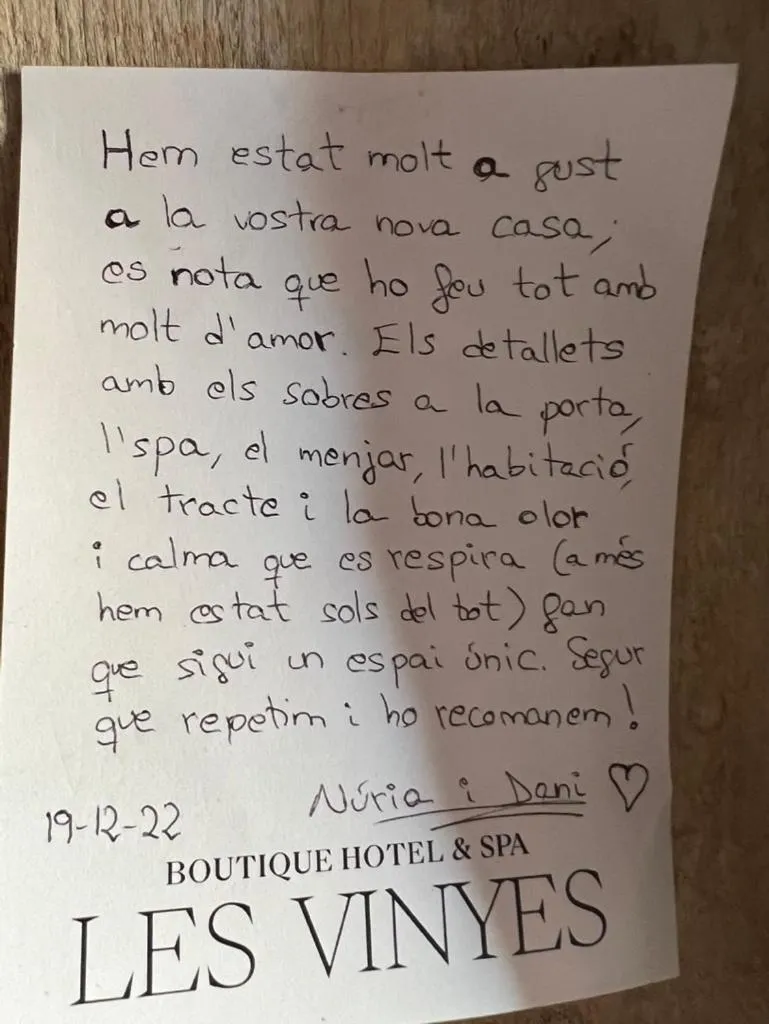 Hem estat molt a gust
a la vostra nova casa;
es nota que ho feu tot amb
molt d'amor. Els detallets
amb els sobres a la porta,
l'spa, el menjar, l'habitació,
el tracte i la bona olor
i calma que es respira (a més
hem estat sols del tot) fan
que sigui un espai únic. Segur
que repetim i ho recomanem!
Núria i Dani ♡
19-12-22
BOUTIQUE HOTEL & SPA
LES VINYES